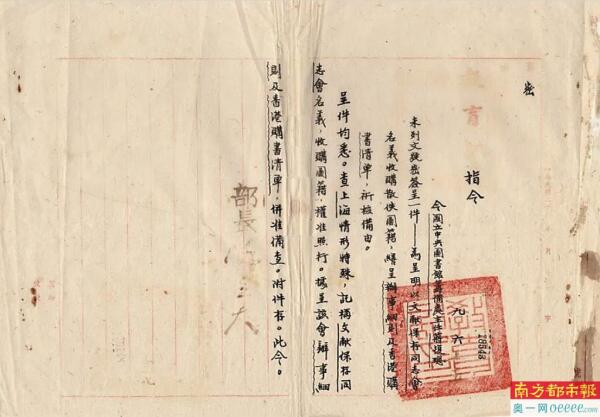 密
育
指令
令國立中央圖書館籌備處主任蔣復璁
九 六
18543
未列文號密簽呈一件——為呈明以文献保存同志會
名義收購散佚圖籍，繕呈辦事細則及香港購
書清單，祈核備由。
呈件均悉。查上海情形特殊，託稱文献保存同
志會名義，收購圖籍，權准照行。據呈該會辦事細
則及香港購書清單，併准備查。附件存。此令。
部長
南方都市報
奥一网oeeee.com